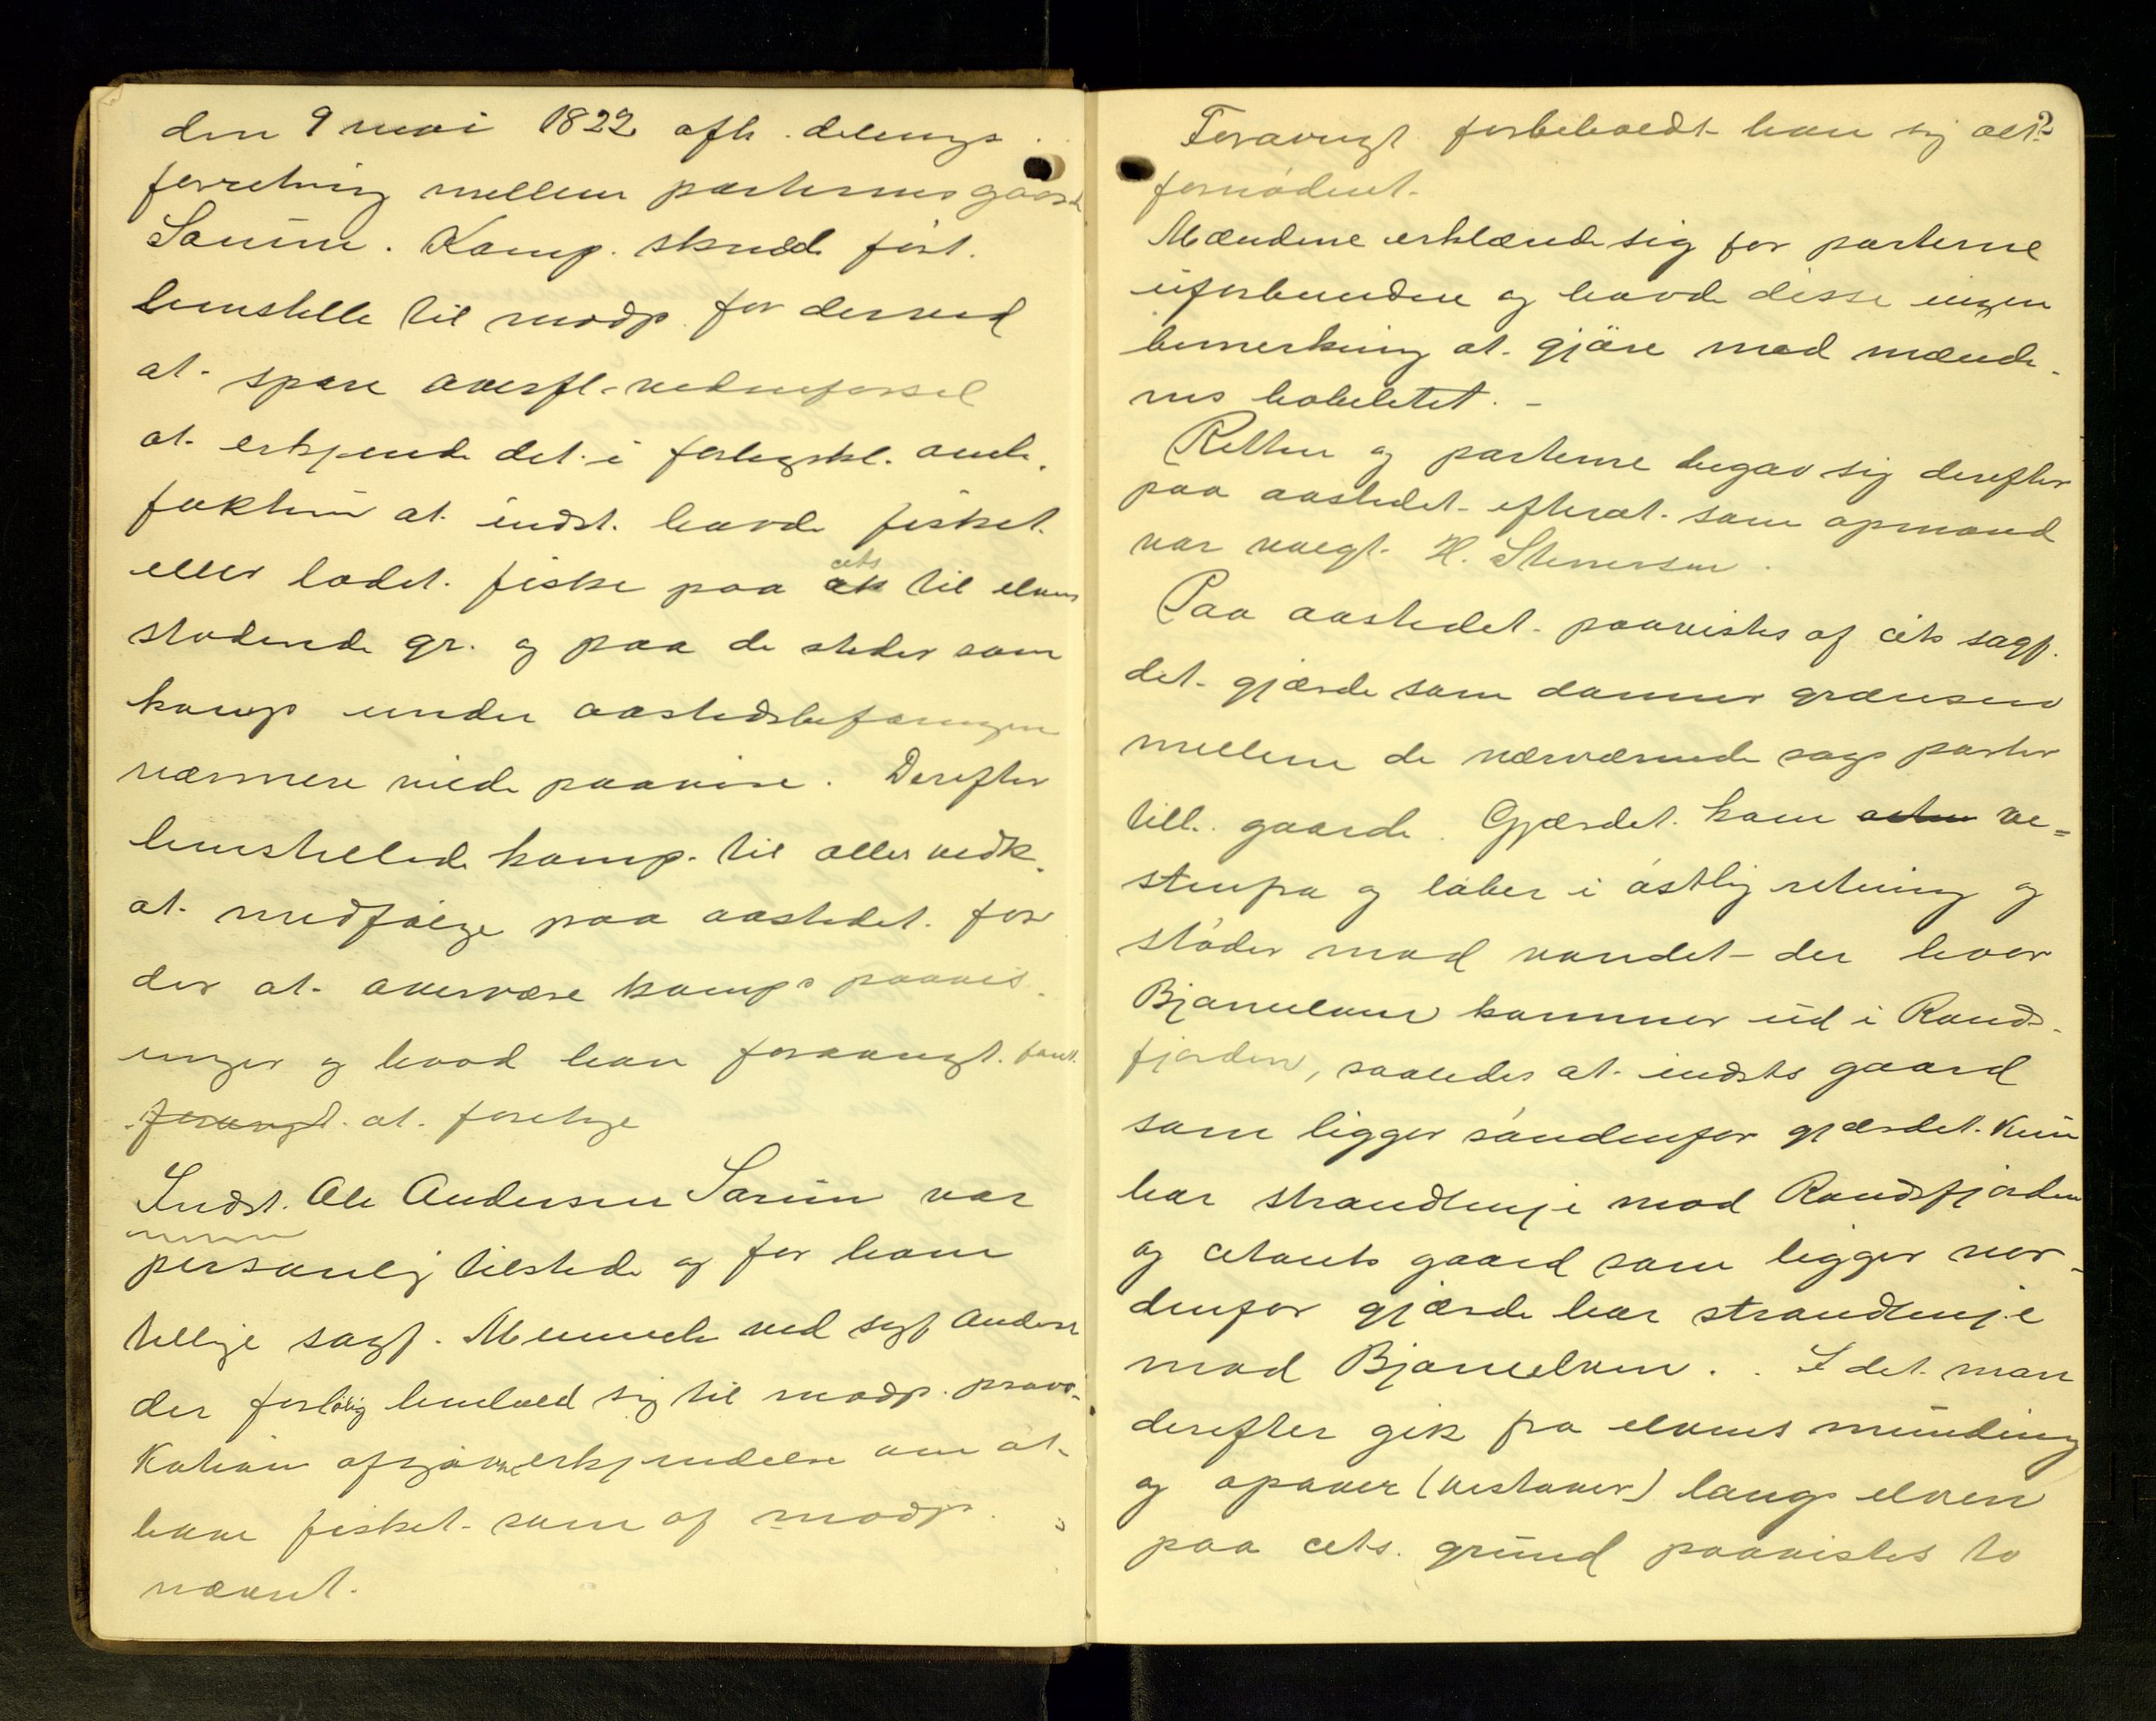 den 9 mai 1822 afh. delings
forretning mellem parternes gaarde
Sørum. Komp. skulde först.
henstille til modp. for derved
at spare overfl. vidneførsel
at erkjende det i forligskl. omh.
faktum at indst. havde fisket
eller ladet fiske paa cits til elven
stødende gr. og paa de steder som
komp under aastedsbefaringen
nærmere vilde paavise. Derefter
henstillede komp. til alle vedk.
at medfölge paa aastedet for
der at overvære komps paavis
ninger og hvad han forøvrigt fant
forøvrigt at foretage
Indst. Ole Andersen Sørum var
personlig tilstede og for ham
tillige sagf. Meinich ved sagf Anders
der forløbig henholdt sig til modp. provo-
kation afgivne erkjendelse om at
have fisket som af modp.
nævnt.
Forøvrigt forbeholdt han sig alt 2
fornødent.
Mændene erklærede sig for parterne
uforbundne og havde disse ingen
bemerkning at gjøre mod mænde-
nes habilitet. -
Retten og parterne begav sig derefter
paa aastedet efterat som opmand
var valgt H. Stenersen.
Paa aastedet paavistes af cits sagf.
det gjærde som danner grænsen
mellem de nærværende sags parter
till. gaarde. Gjærdet kom ve=
stenfra og løber i östlig retning og
støder mod vandet der hvor
Bjoneelven kommer ud i Rands-
fjorden, saaledes at indsts gaard
som ligger söndenfor gjærdet kun
har strandlinje mod Randsfjorden
og citants gaard som ligger nor-
denfor gjærde har strandlinje
mod Bjoneelven. I det man
derefter gik fra elvens munding
og opover (vestover) langs elven
paa cits. grund paavistes to